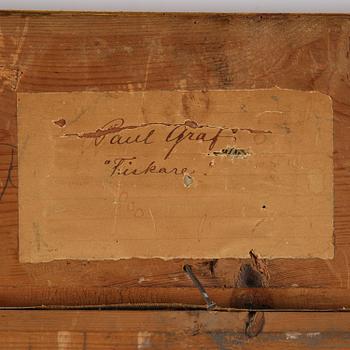 Paul Graf
"Fiskare".